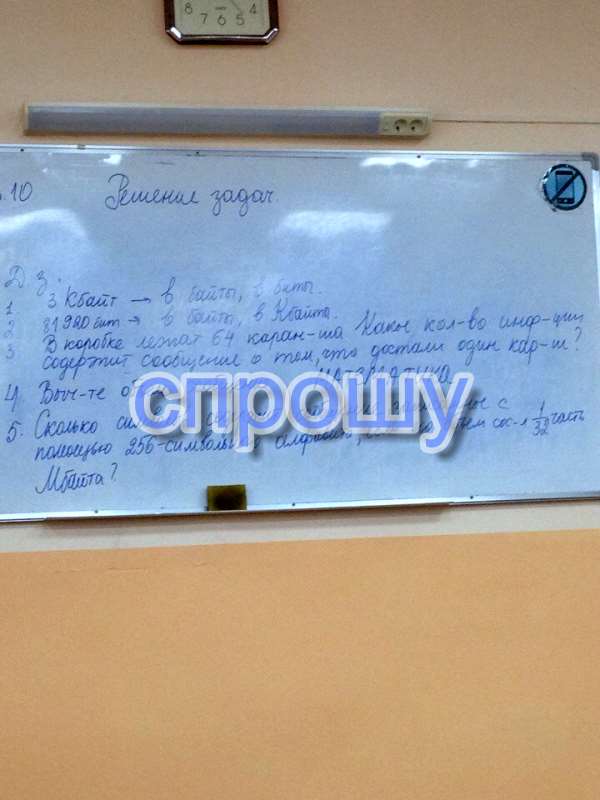 8 7 6 5 4
.10 Решение задач.
Д з.
1 3 Кбайт → в байты, в биты.
2 81920 бит → в байты, в Кбайты.
3 В коробке лежат 64 каран-ша Какое кол-во инф-ции
содержит сообщение о том, что достали один кар-ш?
4. Выч-те математика
спрошу
5. Сколько с
помощью 256-символьн алфавита, сос-л 1/32 часть
Мбайта?